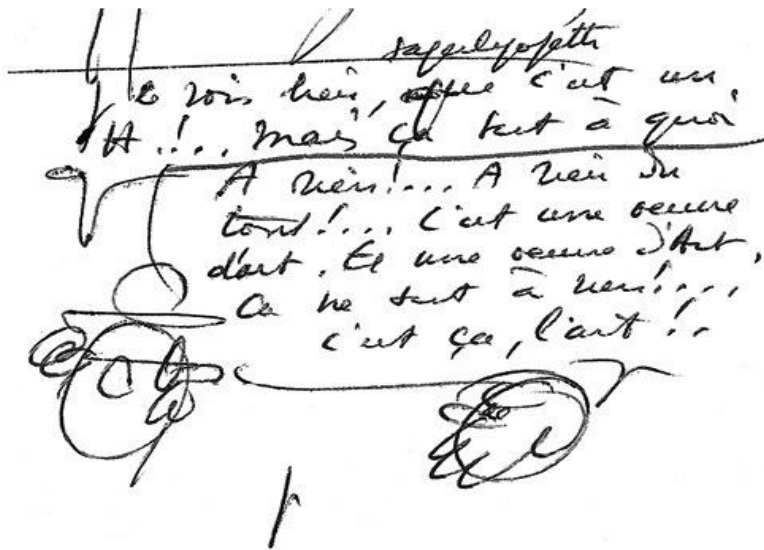 Je vois bien, que c'est un
H !... mais ça sert à quoi
A rien !... A rien du
tout !... C'est une oeuvre
d'art. Et une oeuvre d'Art,
Ca ne sert à rien !...
c'est ça, l'art !..